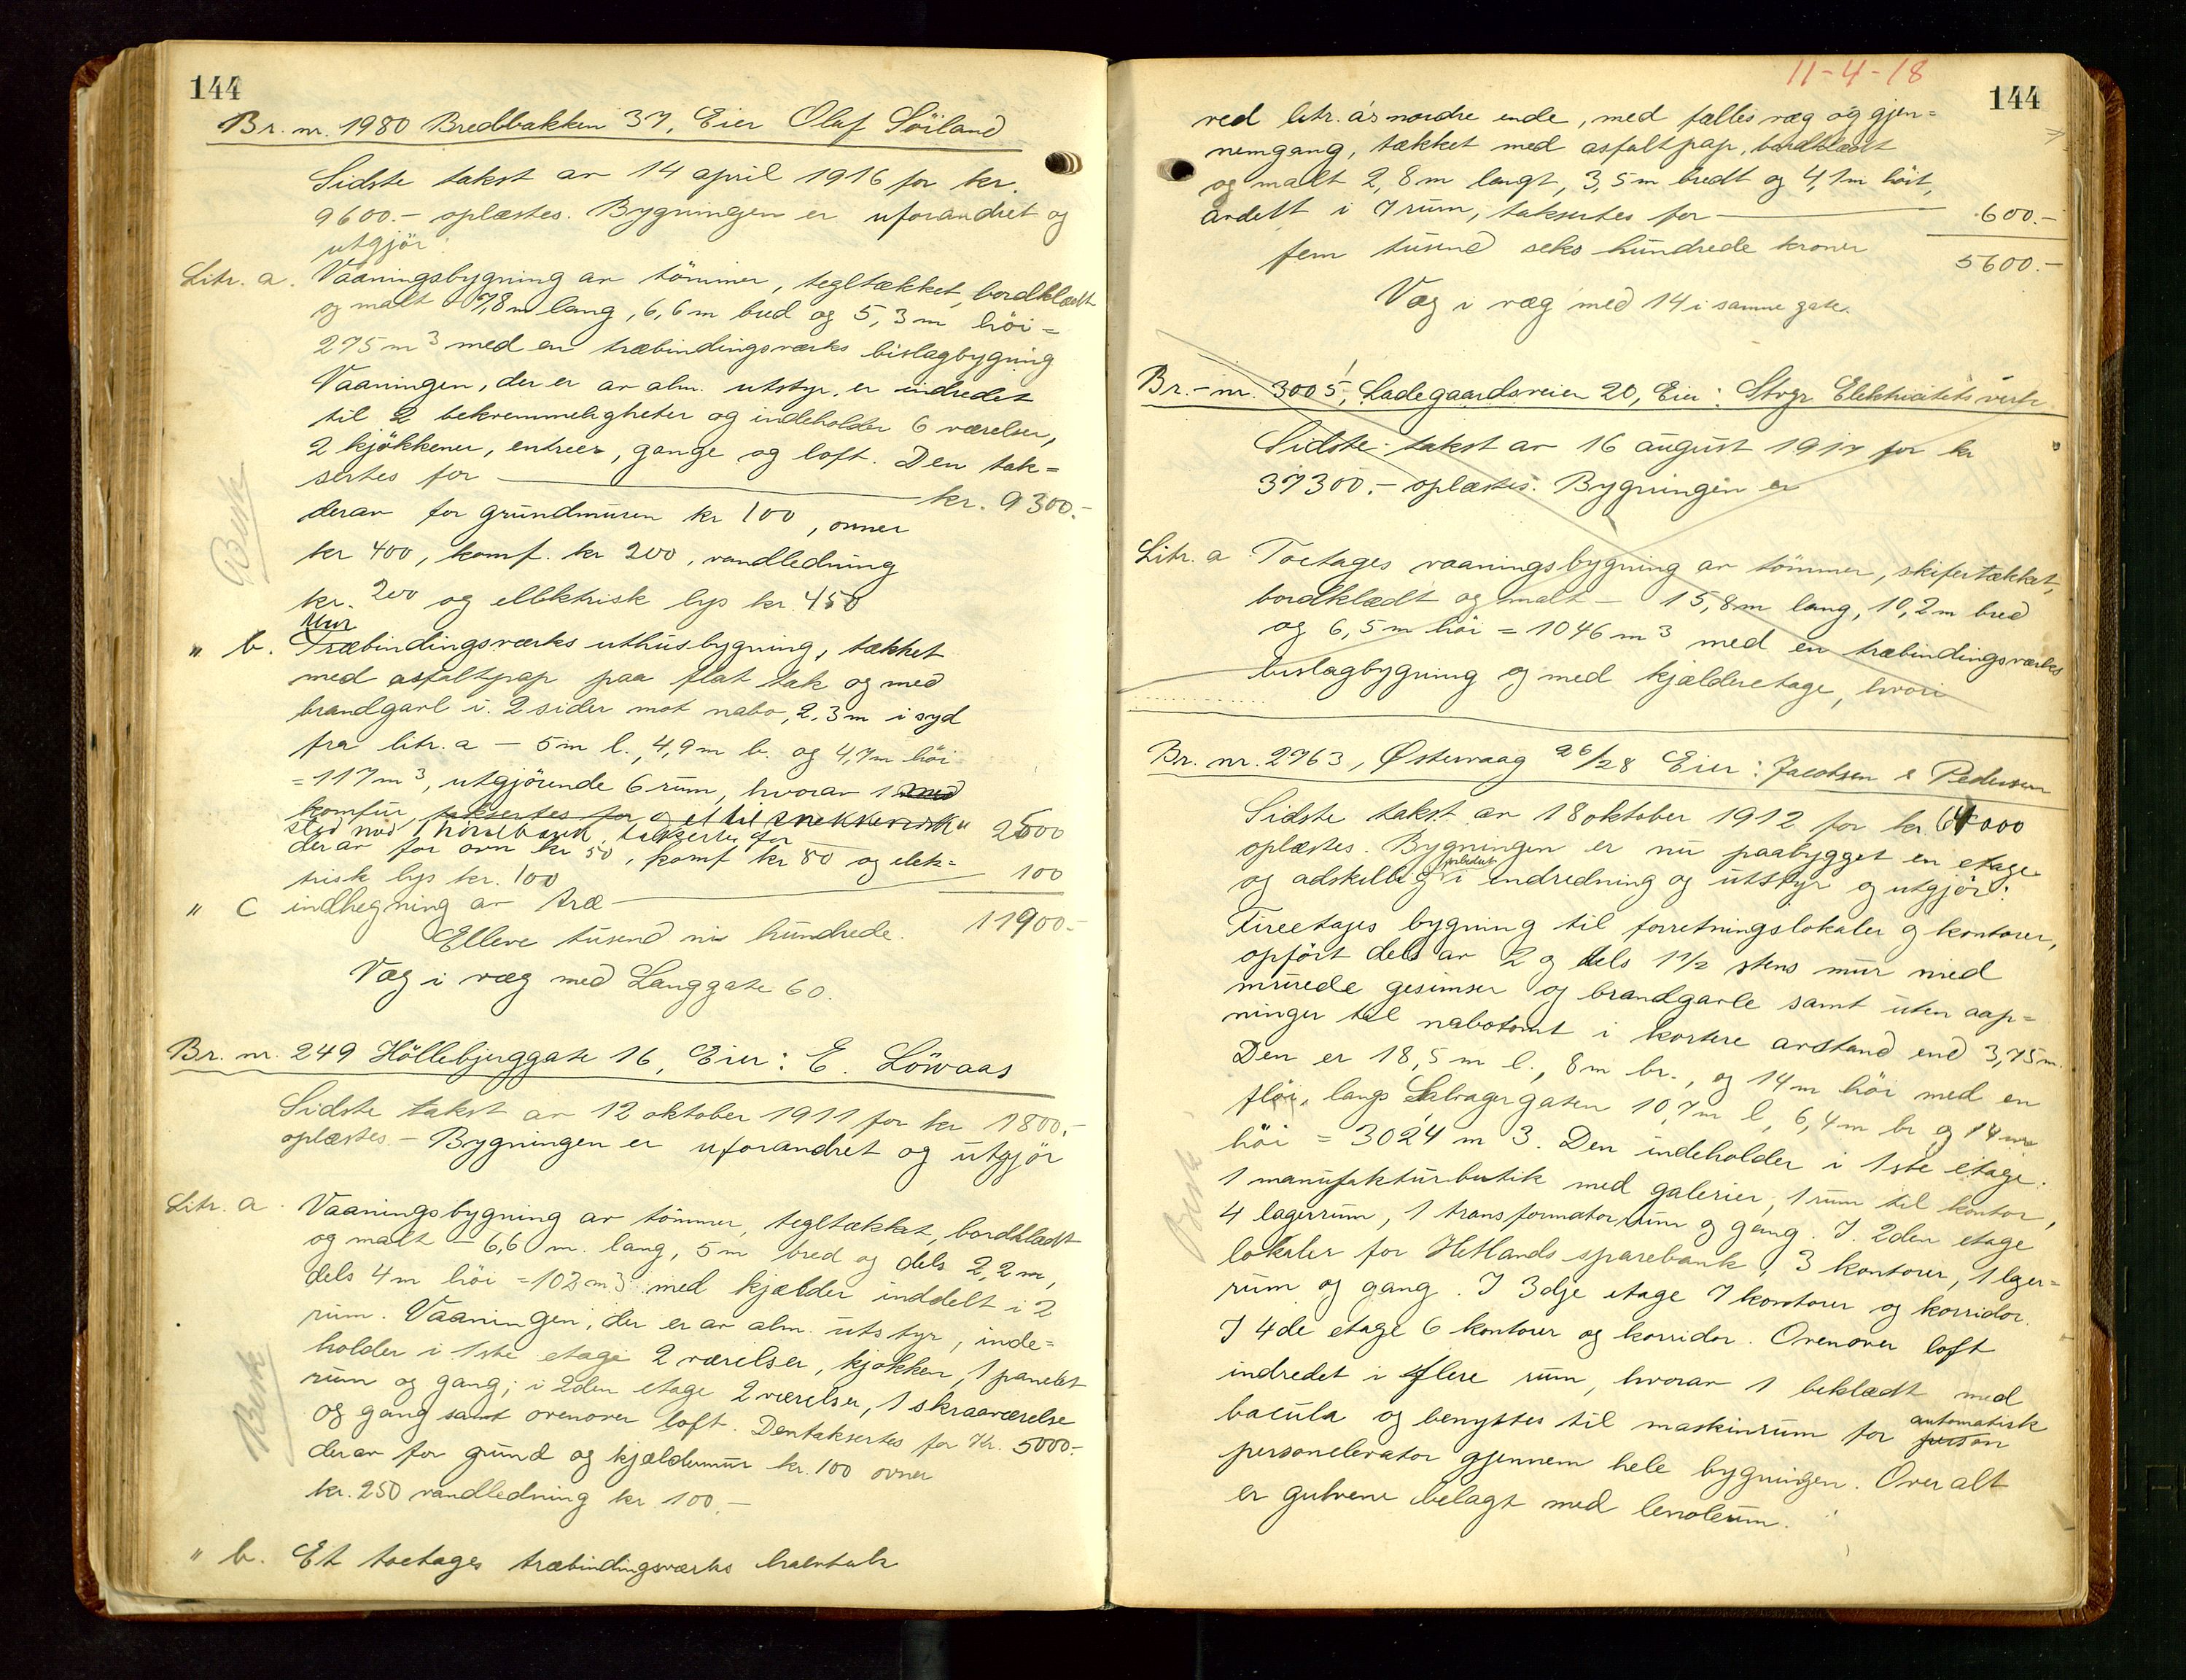 144
Br. nr. 1980 Bredbakken 37, Eier Olaf Söiland
Sidste takst av 14 april 1916 for kr.
9600.- oplæstes. Bygningen er uforandret og
utgjör:
Litr. a. Vaaningsbygning av tömmer, tegltækket, bordklædt
og malt - 7,8 m lang, 6,6 m bred og 5,3 m höi =
275 m3 med en træbindingsværks bislagbygning
Vaaningen, der er av alm. utstyr, er indredet
til 2 bekvemmeligheter og indeholder 6 værelser,
2 kjökkener, entreer, gange og loft. Den tak=
sertes for kr. 9300.-
derav for grundmuren kr 100, ovner
kr 400, komf. kr 200, vandledning
kr. 200 og ellektrisk lys kr 450
Mur
" b. Træbindingsværks uthusbygning, tækket
med asfaltpap paa flat tak og med
brandgavl i 2 sider mot nabo, 2,3 m i syd
fra litr. a - 5 m l., 4,9 m b. og 4,7 m höi
= 117 m3, utgjörende 6 rum, hvorav 1 med
komfur, taksertes for og et til snekkerverk"
sted med 1 hövelbænk, taksertes for 2500
derav for ovn kr 50, komf kr 80 og elek=
trisk lys kr. 100
" C indhegning av træ 100
Elleve tusend ni hundrede. 11900.-
Væg i væg med Langgate 60.
Br. nr. 249 Höllebjerggate 16, Eier: E. Lövaas
Sidste takst av 12 oktober 1911 for kr 1800.-
oplæstes. - Bygningen er uforandret og utgjör
Litr. a. Vaaningsbygning av tömmer, tegltækket, bordklædt
og malt - 6,6 m. lang, 5 m bred og dels 2,2 m,
dels 4 m höi = 102 m3 med kjælder inddelt i 2
rum. Vaaningen, der er av alm. utstyr, inde=
holder i 1ste etage 2 værelser, kjökken, 1 panelet
rum og gang; i 2den etage 2 værelser, 1 skraaværelse
og gang samt ovenover loft. Den taksertes for Kr. 5000.-
derav for grund og kjældermur kr. 100 ovner
kr. 250 vandledning kr 100.-
" b. Et toetages træbindingsværks halvtak
Besk
Besk
11-4-18
144
ved litr. a's nordre ende, med fælles væg og gjen=
nemgang, tækket med asfaltpap, bordklædt
og malt 2,8 m langt, 3,5 m bredt og 4,1 m höit,
avdelt i 7 rum, taksertes for 600.-
fem tusend seks hundrede kroner 5600.-
Væg i væg med 14 i samme gate.
Br.-nr. 3005, Ladegaardsveien 20, Eier: Stvgr Elektricitetsverk
Sidste takst av 16 august 1917 for kr
37300.- oplæstes. Bygningen er
Litr. a Toetages vaaningsbygning av tömmer, skifertækket,
bordklædt og malt - 15,8 m lang, 10,2 m bred
og 6,5 m höi = 1046 m3 med en træbindingsværks
bislagbygning og med kjælderetage, hvori
Br. nr. 2763, Østervaag 26/28 Eier: Jacobsen & Pedersen
Sidste takst av 18 oktober 1912 for kr 64000
oplæstes. Bygningen er nu paabygget en etage
og adskillig forbedret i indredning og utstyr og utgjör:
Fireetages bygning til forretningslokaler og kontorer,
opfört dels av 2 og dels 1 1/2 stens mur med
murede gesimser og brandgavle samt uten aap=
ninger til nabotomt i kortere avstand end 3,75 m.
Den er 18,5 m l., 8 m br., og 14 m höi med en
flöi, langs Salvagergaten 10,7 m l, 6,4 m br og 14 m
höi = 3024 m 3. Den indeholder i 1ste etage.
1 manufakturbutik med galerier, 1 rum til kontor,
4 lagerrum, 1 transformatorrum og gang. I. 2den etage
lokaler for Hetlands sparebank, 3 kontorer, 1 lger=
rum og gang. I 3dje etage 7 kontorer og korridor.
I 4de etage 6 kontorer og korridor. Ovenover loft
indredet i flere rum, hvorav 1 beklædt med
bacula og benyttes til maskinrum for person automatisk
personelevator gjennem hele bygningen. Overalt
er gulvene belagt med lenoleum.
Besk